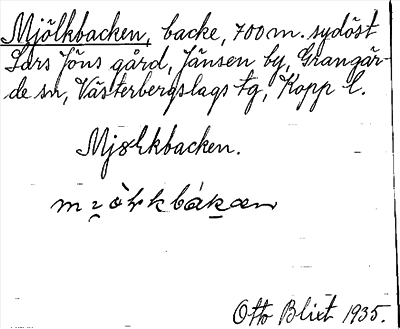 Mjölkbacken, backe, 700 m. sydöst
Lars Jöns gård, Jänsen by, Grangär-
de sn, Västerbergslags tg, Kopp. l.
Mjölkbacken.
Otto Blixt 1935.